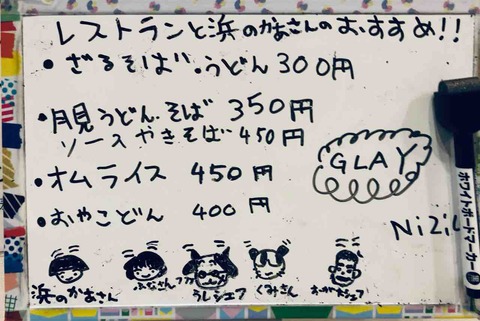 レストランと浜のかあさんのおすすめ!!
・ざるそば・うどん300円
・月見うどん・そば 350円
ソースやきそば 450円
・オムライス 450円
GLAY
・おやこどん 400円
NiZiU
浜のかあさん
ふなさん
うしシェフ
くみさん
ホワイトボードマーカー